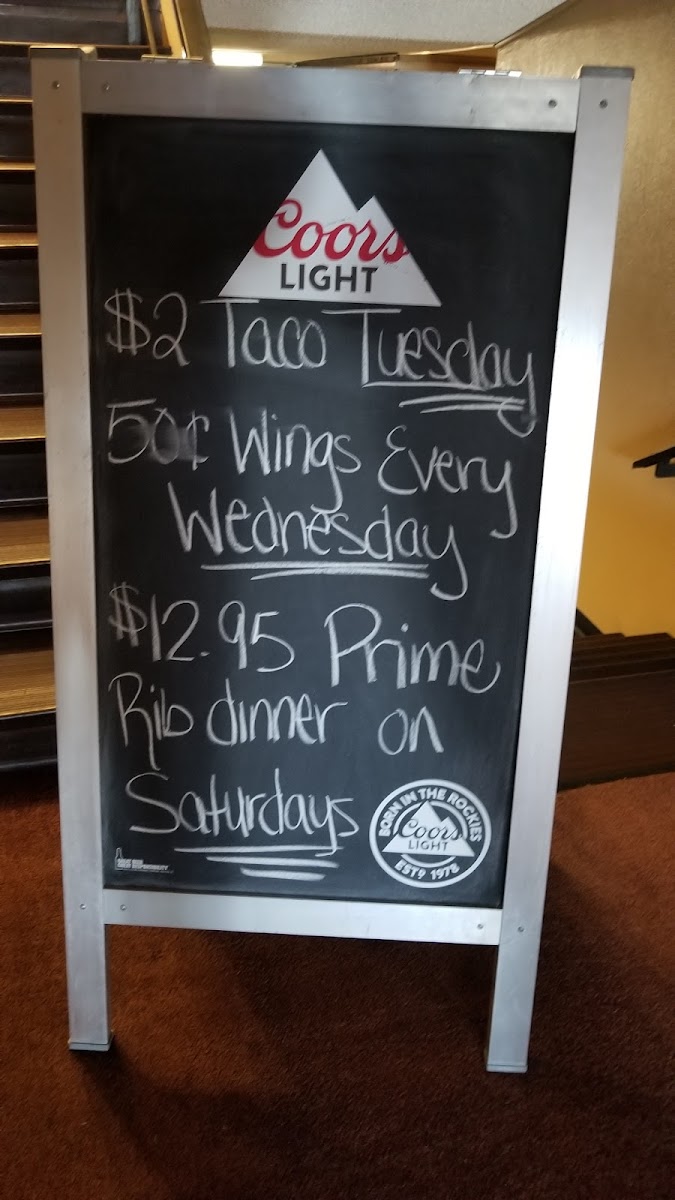 Coors
LIGHT
$2 Taco Tuesday
50¢ Wings Every
Wednesday
$12.95 Prime
Rib dinner on
Saturdays
BORN IN THE ROCKIES
Coors
LIGHT
EST? 1978